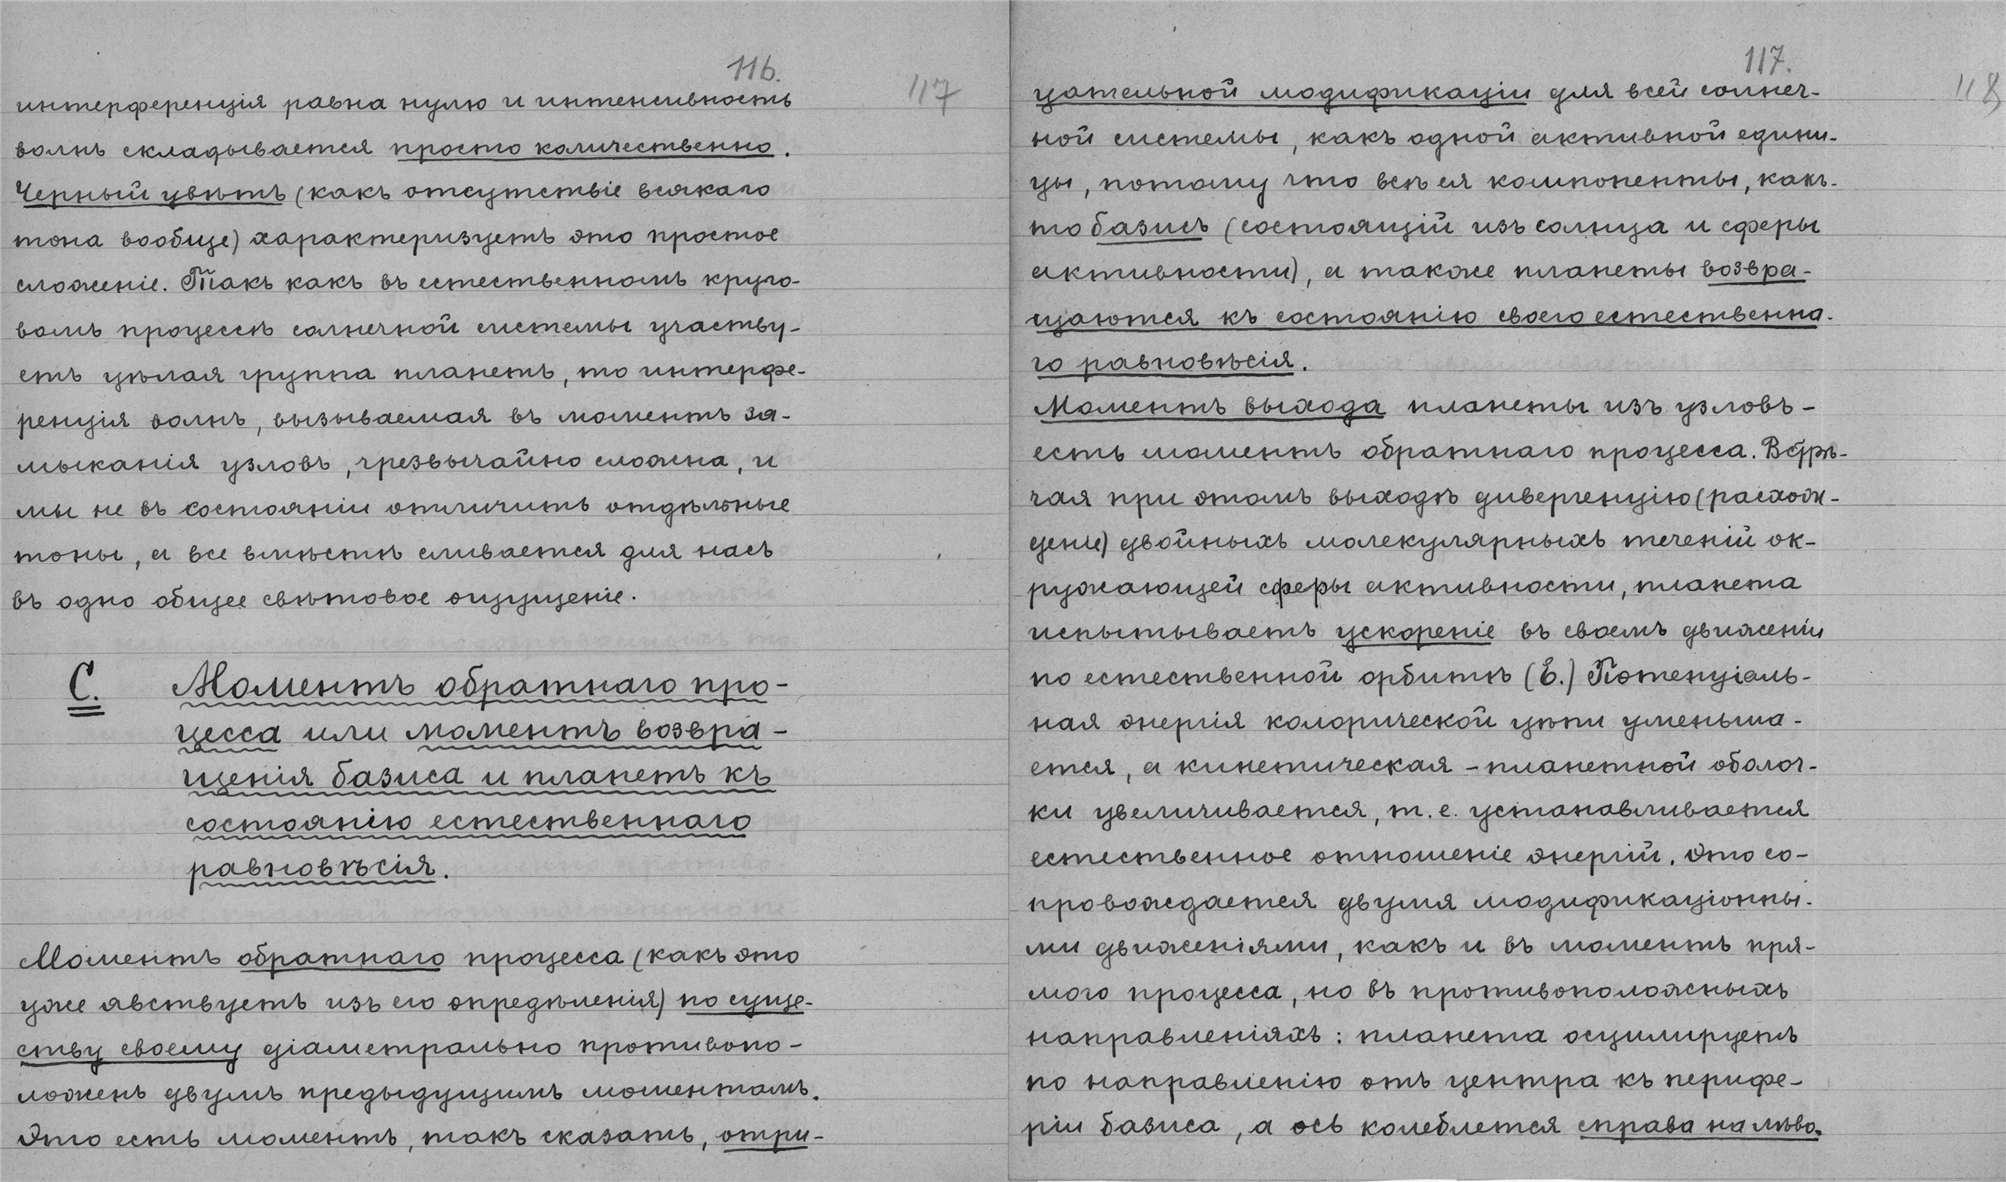 116.
117
интерференція равна нулю и интенсивность
волнъ складывается просто количественно.
Черный цвѣтъ (какъ отсутствіе всякаго
тона вообще) характеризуетъ это простое
сложеніе. Такъ какъ въ естественномъ круго-
вомъ процессѣ солнечной системы участву-
етъ цѣлая группа планетъ, то интерфе-
ренція волнъ, вызываемая въ моментъ за-
мыканія узловъ, чрезвычайно сложна, и
мы не въ состояніи отличить отдѣльные
тоны, а все вмѣстѣ сливается для насъ
въ одно общее свѣтовое ощущеніе.
С. Моментъ обратнаго про-
цесса или моментъ возвра-
щенія базиса и планетъ къ
состоянію естественнаго
равновѣсія.
Моментъ обратнаго процесса (какъ это
уже явствуетъ изъ его опредѣленія) по суще-
ству своему діаметрально противопо-
ложенъ двумъ предыдущимъ моментамъ.
Это есть моментъ, такъ сказать, отри-
117.
118
цательной модификаціи для всей солнеч-
ной системы, какъ одной активной едини-
цы, потому что всѣ ея компоненты, какъ-
то базисъ (состоящій изъ солнца и сферы
активности), а также планеты возвра-
щаются къ состоянію своего естественна-
го равновѣсія.
Моментъ выхода планеты изъ узловъ -
есть моментъ обратнаго процесса. Встрѣ-
чая при этомъ выходѣ дивергенцію (расхож-
деніе) двойныхъ молекулярныхъ теченій ок-
ружающей сферы активности, планета
испытываетъ ускореніе въ своемъ движеніи
по естественной орбитѣ (Е.) Потенціаль-
ная энергія колорической цѣпи уменьша-
ется, а кинетическая - планетной оболоч-
ки увеличивается, т. е. устанавливается
естественное отношеніе энергій. Это со-
провождается двумя модификаціонны-
ми движеніями, какъ и въ моментъ пря-
мого процесса, но въ противоположныхъ
направленіяхъ: планета осцилируетъ
по направленію отъ центра къ перифе-
ріи базиса, а ось колеблется справа налѣво.